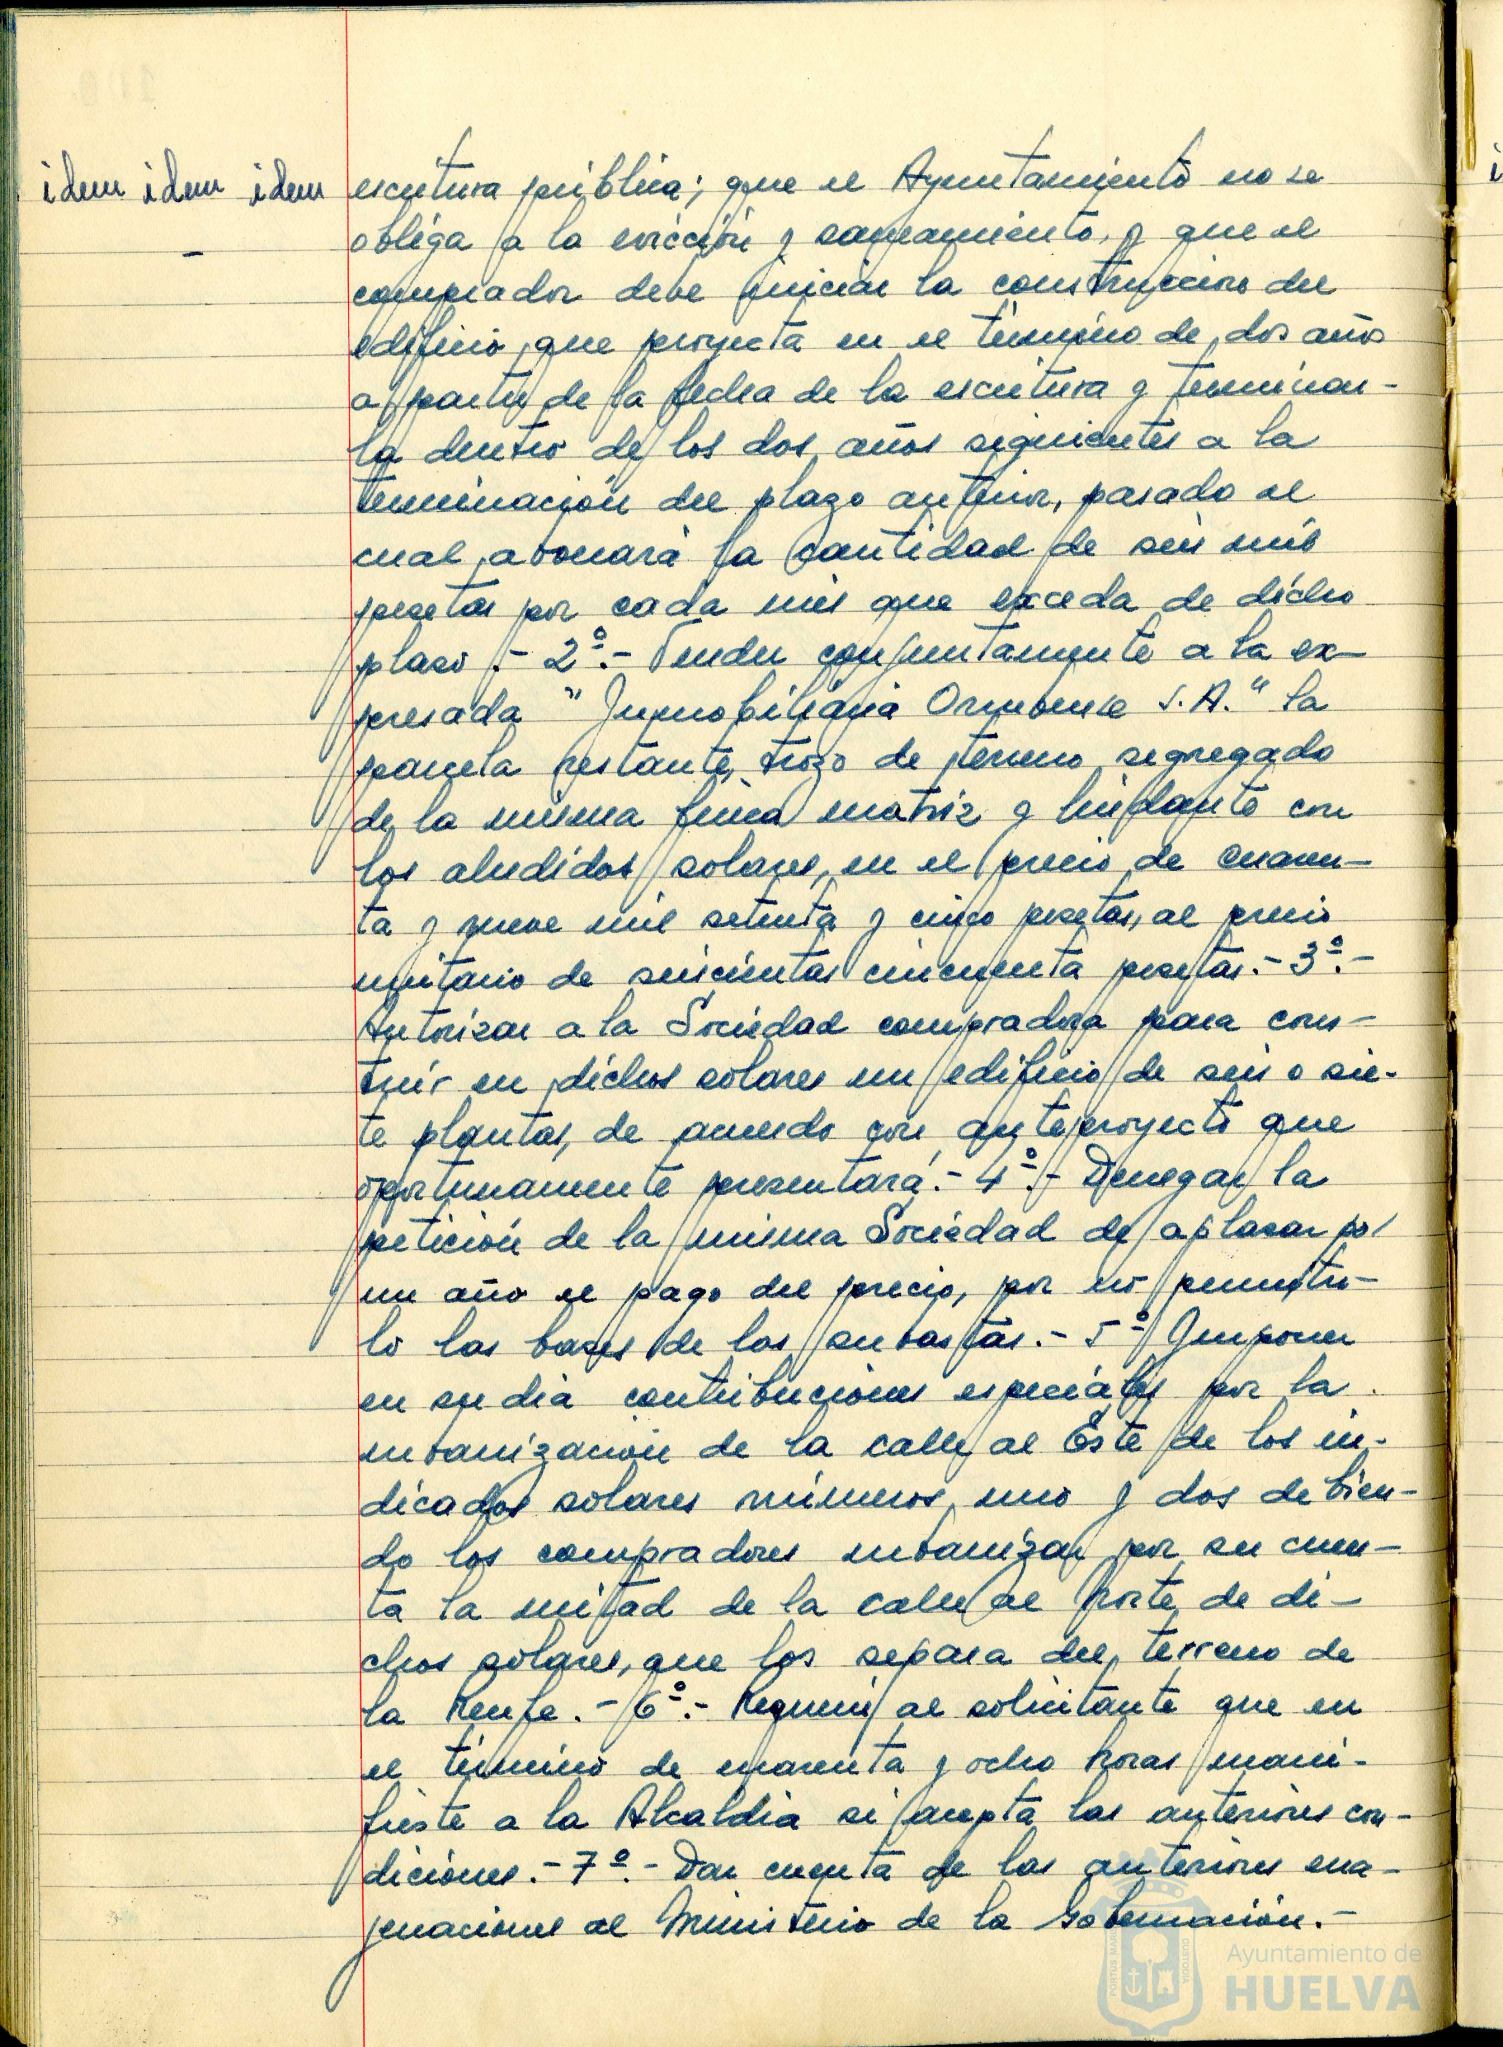 idem idem idem
-
escritura pública; que el Ayuntamiento no se
obliga a la evicción y saneamiento, y que el
comprador debe iniciar la construccion del
edificio que proyecta en el término de dos años
a partir de la fecha de la escritura y terminar-
la dentro de los dos años siguientes a la
terminación del plazo anterior, pasado el
cual abonará la cantidad de seis mil
pesetas por cada mes que exceda de dicho
plaso.- 2º.- Vender conjuntamente a la ex-
presada "Inmobiliaria Onubense S.A." la
parcela restante, trozo de terreno segregado
de la misma finca matriz y lindante con
los aludidos solares, en el precio de cuaren-
ta y nueve mil setenta y cinco pesetas, al precio
unitario de seiscientas cincuenta pesetas.- 3º.-
Autorizar a la Sociedad compradora para cons-
truir en dichos solares un edificio de seis o sie-
te plantas, de acuerdo con anteproyecto que
oportunamente presentará.- 4º.- Denegar la
petición de la misma Sociedad de aplasar por
un año el pago del precio, por no permitir-
lo las bases de las subastas.- 5º Imponer
en su dia contribuciones especiales por la
urbanización de la calle al Este de los in-
dicados solares números uno y dos debien-
do los compradores urbanizar por su cuen-
ta la mitad de la calle al Norte de di-
chos solares, que los separa del terreno de
la Renfe.- 6º.- Requerir al solicitante que en
el término de cuarenta y ocho horas mani-
fieste a la Alcaldia si acepta las anteriores con-
diciones.- 7º.- Dar cuenta de las anteriores ena-
jenaciones al Ministerio de la Gobernación.-
Ayuntamiento de
HUELVA